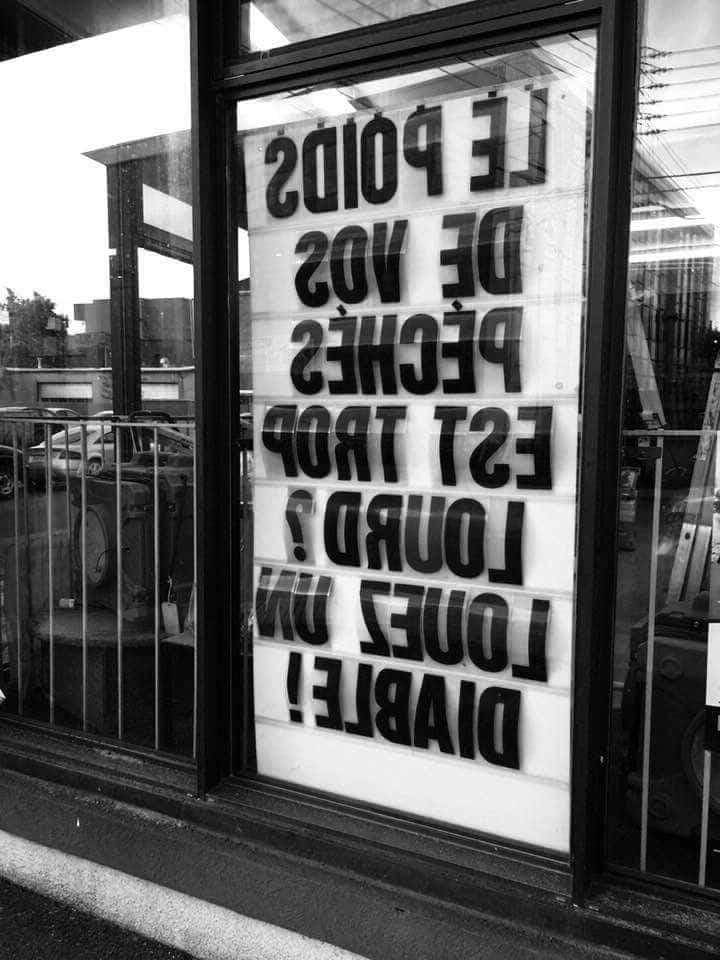 LE POIDS
DE VOS
PÉCHÉS
EST TROP
LOURD ?
LOUEZ UN
DIABLE !